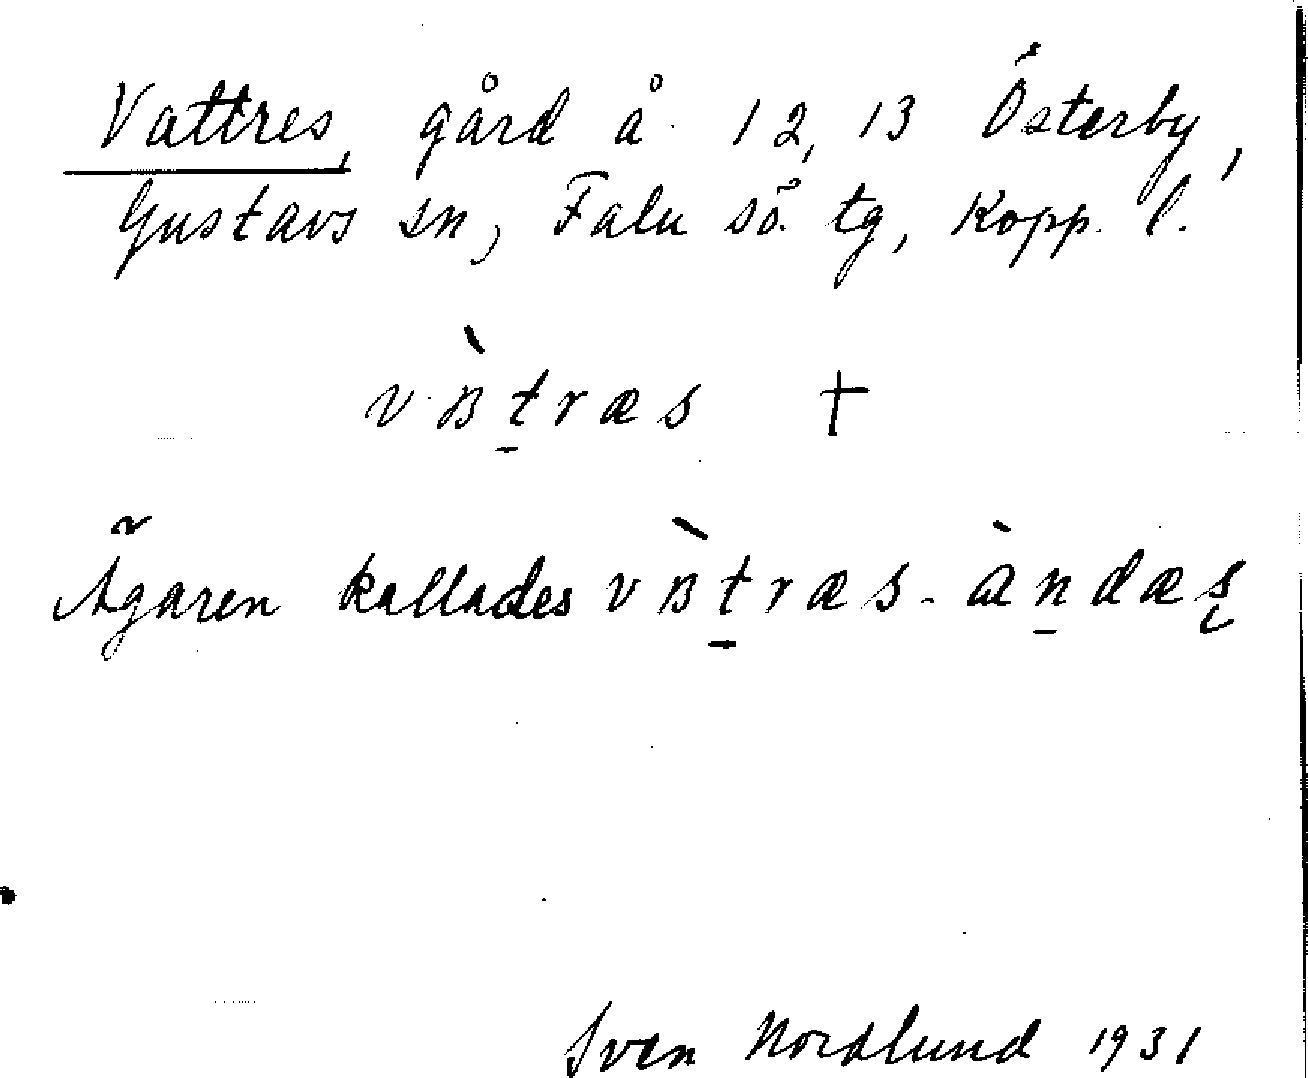 Vattres, gård å 12, 13 Österby,
Gustavs sn, Falu sö. tg, Kopp. l.
vʙ̀t̠ræs †
Ägaren kallades vʙ̀t̠ræs-àn̠dæs̨
Sven Nordlund 1931